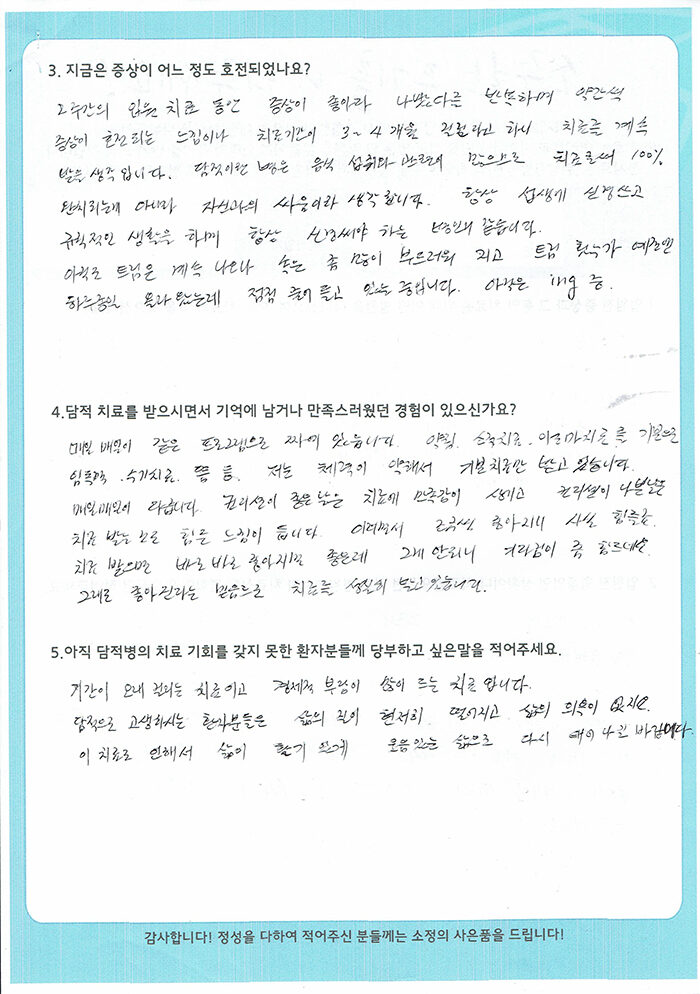 3. 지금은 증상이 어느 정도 호전되었나요?
2주간의 입원 치료 동안 증상이 좋아라 나빴다를 반복하며 약간씩
증상이 호전되는 느낌이나 치료기간이 3~4개월 걸린다고 하니 치료를 계속
받을 생각입니다. 담적이란 병은 음식 섭취와 관련이 많으므로 치료로써 100%
완치되는게 아니라 자신과의 싸움이라 생각합니다. 항상 섭생에 신경쓰고
규칙적인 생활을 하며 항상 신경써야 하는 병인것 같습니다.
아직도 트림은 계속 나오나 속은 좀 많이 부드러워 지고 트림 횟수가 예전엔
하루종일 올라 왔는데 점점 줄어 들고 있는 중입니다. 아직은 ing 중.
4.담적 치료를 받으시면서 기억에 남거나 만족스러웠던 경험이 있으신가요?
매일 매일이 같은 프로그램으로 짜여 있습니다. 약침, 소적치료, 아로마치료를 기본으로
수기치료, 뜸 등. 저는 체력이 약해서 기본치료만 받고 있습니다.
매일매일이 다릅니다. 컨디션이 좋은날은 치료에 만족감이 생기고 컨디션이 나쁜날은
치료 받는 것도 힘든 느낌이 듭니다. 이래면서 조금씩 좋아지니 사실 힘들죠.
치료 받으면 바로바로 좋아지면 좋은데 그게 안되니 여러점이 좀 힘드네요.
그래도 좋아진다는 믿음으로 치료를 성실히 받고 있습니다.
5.아직 담적병의 치료 기회를 갖지 못한 환자분들께 당부하고 싶은말을 적어주세요.
기간이 오래 걸리는 치료이고 경제적 부담이 많이 드는 치료 입니다.
담적으로 고생하시는 환자분들은 삶의 질이 현저히 떨어지고 삶의 의욕이 없지요.
이 치료로 인해서 삶이 활기 있게 웃음있는 삶으로 다시 바랍니다.
감사합니다! 정성을 다하여 적어주신 분들께는 소정의 사은품을 드립니다!